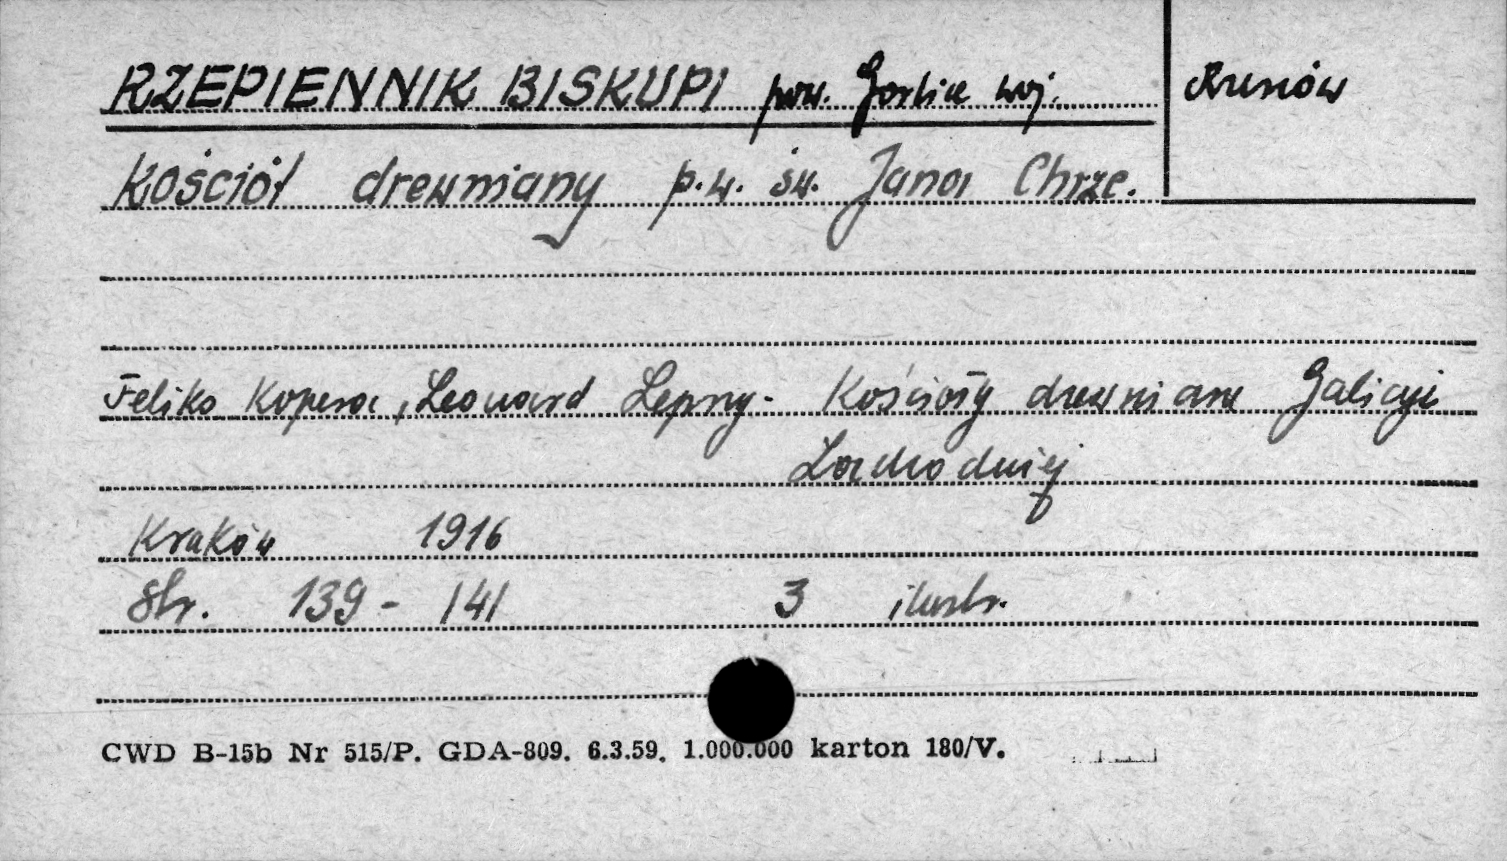 RZEPIENNIK BISKUPI pow. Gorlice woj. Rzeszów
Kościół drewniany p.w. św. Jana Chrzc.
Feliks Kopera, Leonard Lepszy - Kościoły drewniane Galicyi
Zachodniej
Kraków 1916
Str. 139 - 141 3 ilustr.
CWD B-15b Nr 515/P. GDA-809. 6.3.59. 1.000.000 karton 180/V.